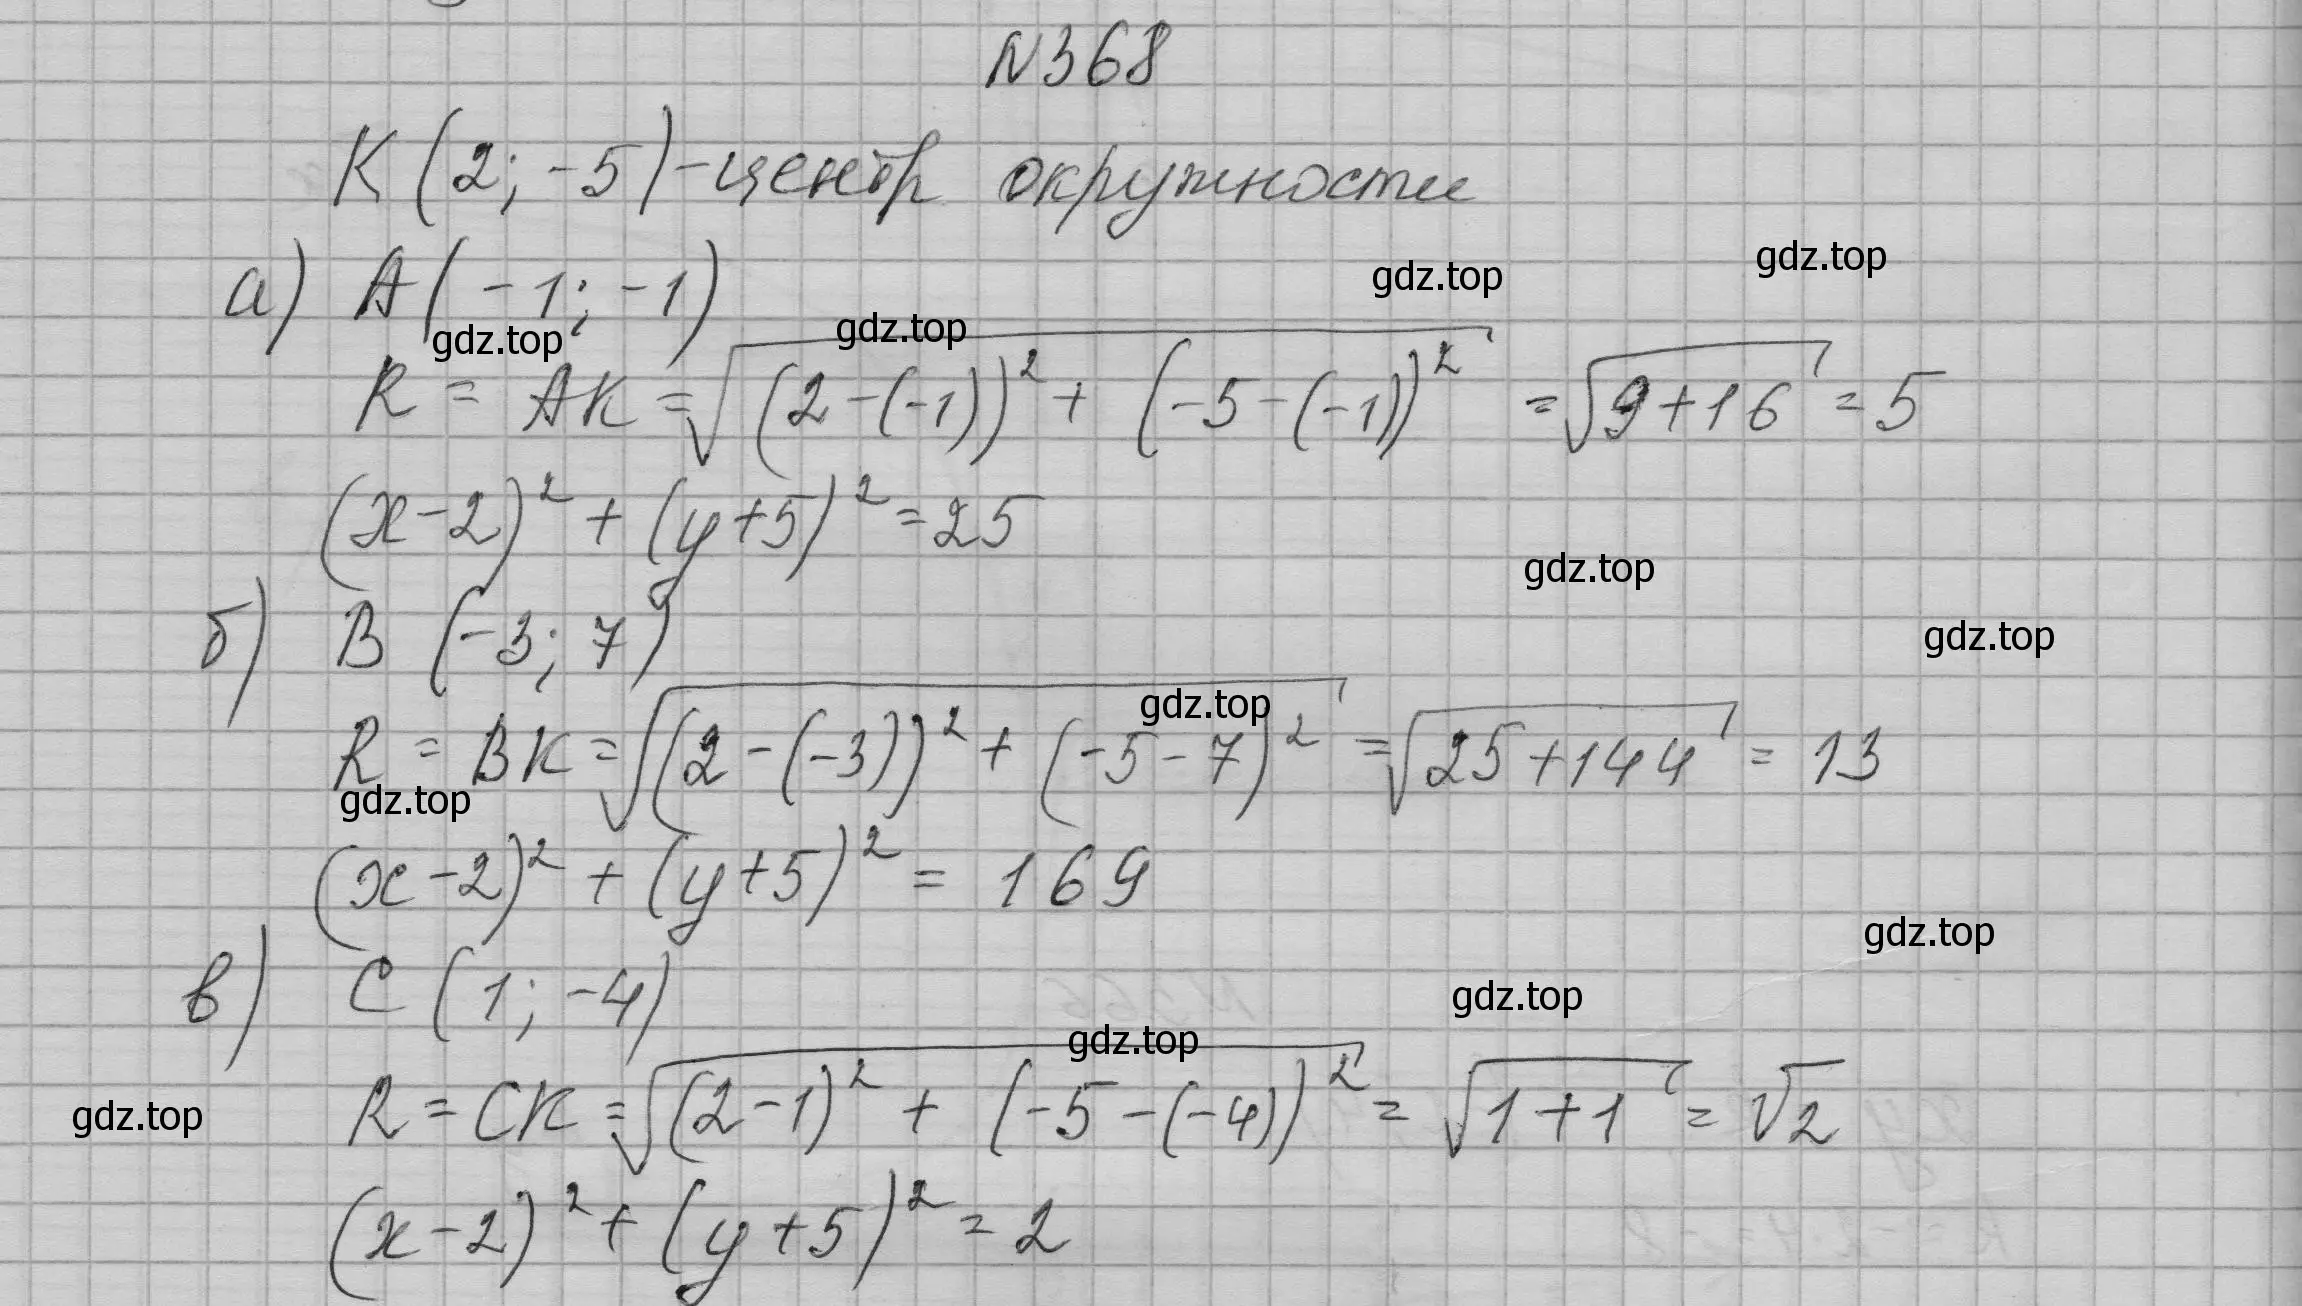 N368
K(2; -5) - центр окружности
gdz.top
gdz.top
а) A(-1; -1)
gdz.top
gdz.top
R = AK = √((2-(-1))² + (-5-(-1))²) = √(9+16) = 5
(x-2)² + (y+5)² = 25
gdz.top
б) B(-3; 7)
gdz.top
gdz.top
R = BK = √((2-(-3))² + (-5-7)²) = √(25+144) = 13
gdz.top
(x-2)² + (y+5)² = 169
gdz.top
в) C(1; -4)
gdz.top
gdz.top
R = CK = √((2-1)² + (-5-(-4))²) = √(1+1) = √2
gdz.top
(x-2)² + (y+5)² = 2